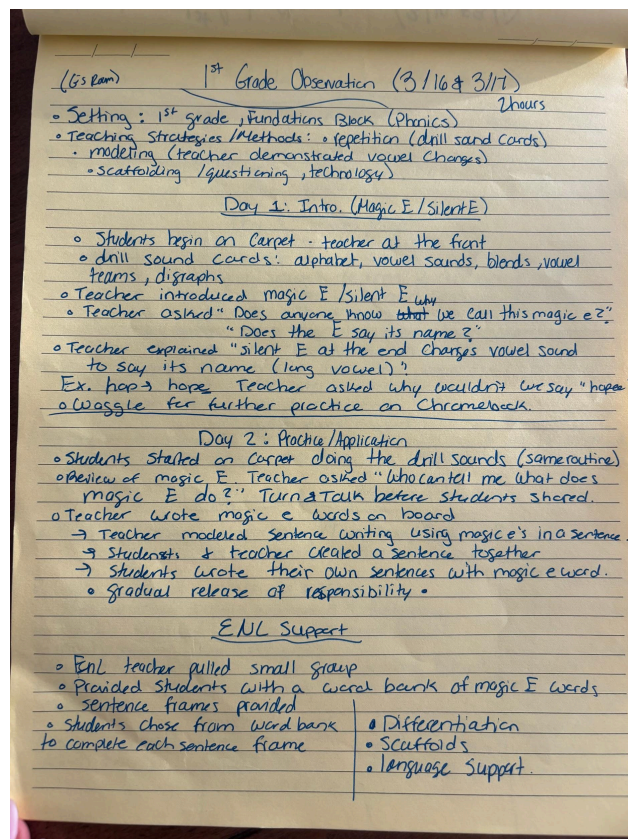 (Gis Ram) 1st Grade Observation (3/16 & 3/17)
2hours
• Setting : 1st grade, Fundations Block (Phonics)
• Teaching Strategies/Methods: • repetition (drill sand cards)
• modeling (teacher demonstrated vowel changes)
• scaffolding /questioning, technology)
Day 1: Intro. (Magic E/Silent E)
• Students begin on Carpet - teacher at the front
• drill sound cards: alphabet, vowel sounds, blends, vowel
teams, digraphs
• Teacher introduced magic E /silent E
• Teacher asked "Does anyone know what why we call this magic e?"
"Does the E say its name?"
• Teacher explained "silent E at the end changes vowel sound
to say its name (long vowel)"
Ex. hop → hope. Teacher asked why wouldn't we say "hopee
• Waggle for further practice on Chromebook.
Day 2: Practice/Application
• Students started on Carpet doing the drill sounds (same routine)
• Review of magic E. Teacher asked "Who can tell me what does
magic E do?" Turn & Talk before students shared.
• Teacher wrote magic e words on board
→ Teacher modeled sentence writing using magic e's in a sentence.
→ Students & teacher created a sentence together
→ Students wrote their own sentences with magic e word.
• gradual release of responsibility •
ENL Support
• EnL teacher pulled small group
• Provided students with a word bank of magic E words
• sentence frames provided
• Students chose from word bank
to complete each sentence frame
• Differentiation
• Scaffolds
• language Support.